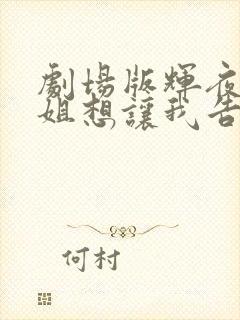 劇場版輝夜
姐想讓我告
何村